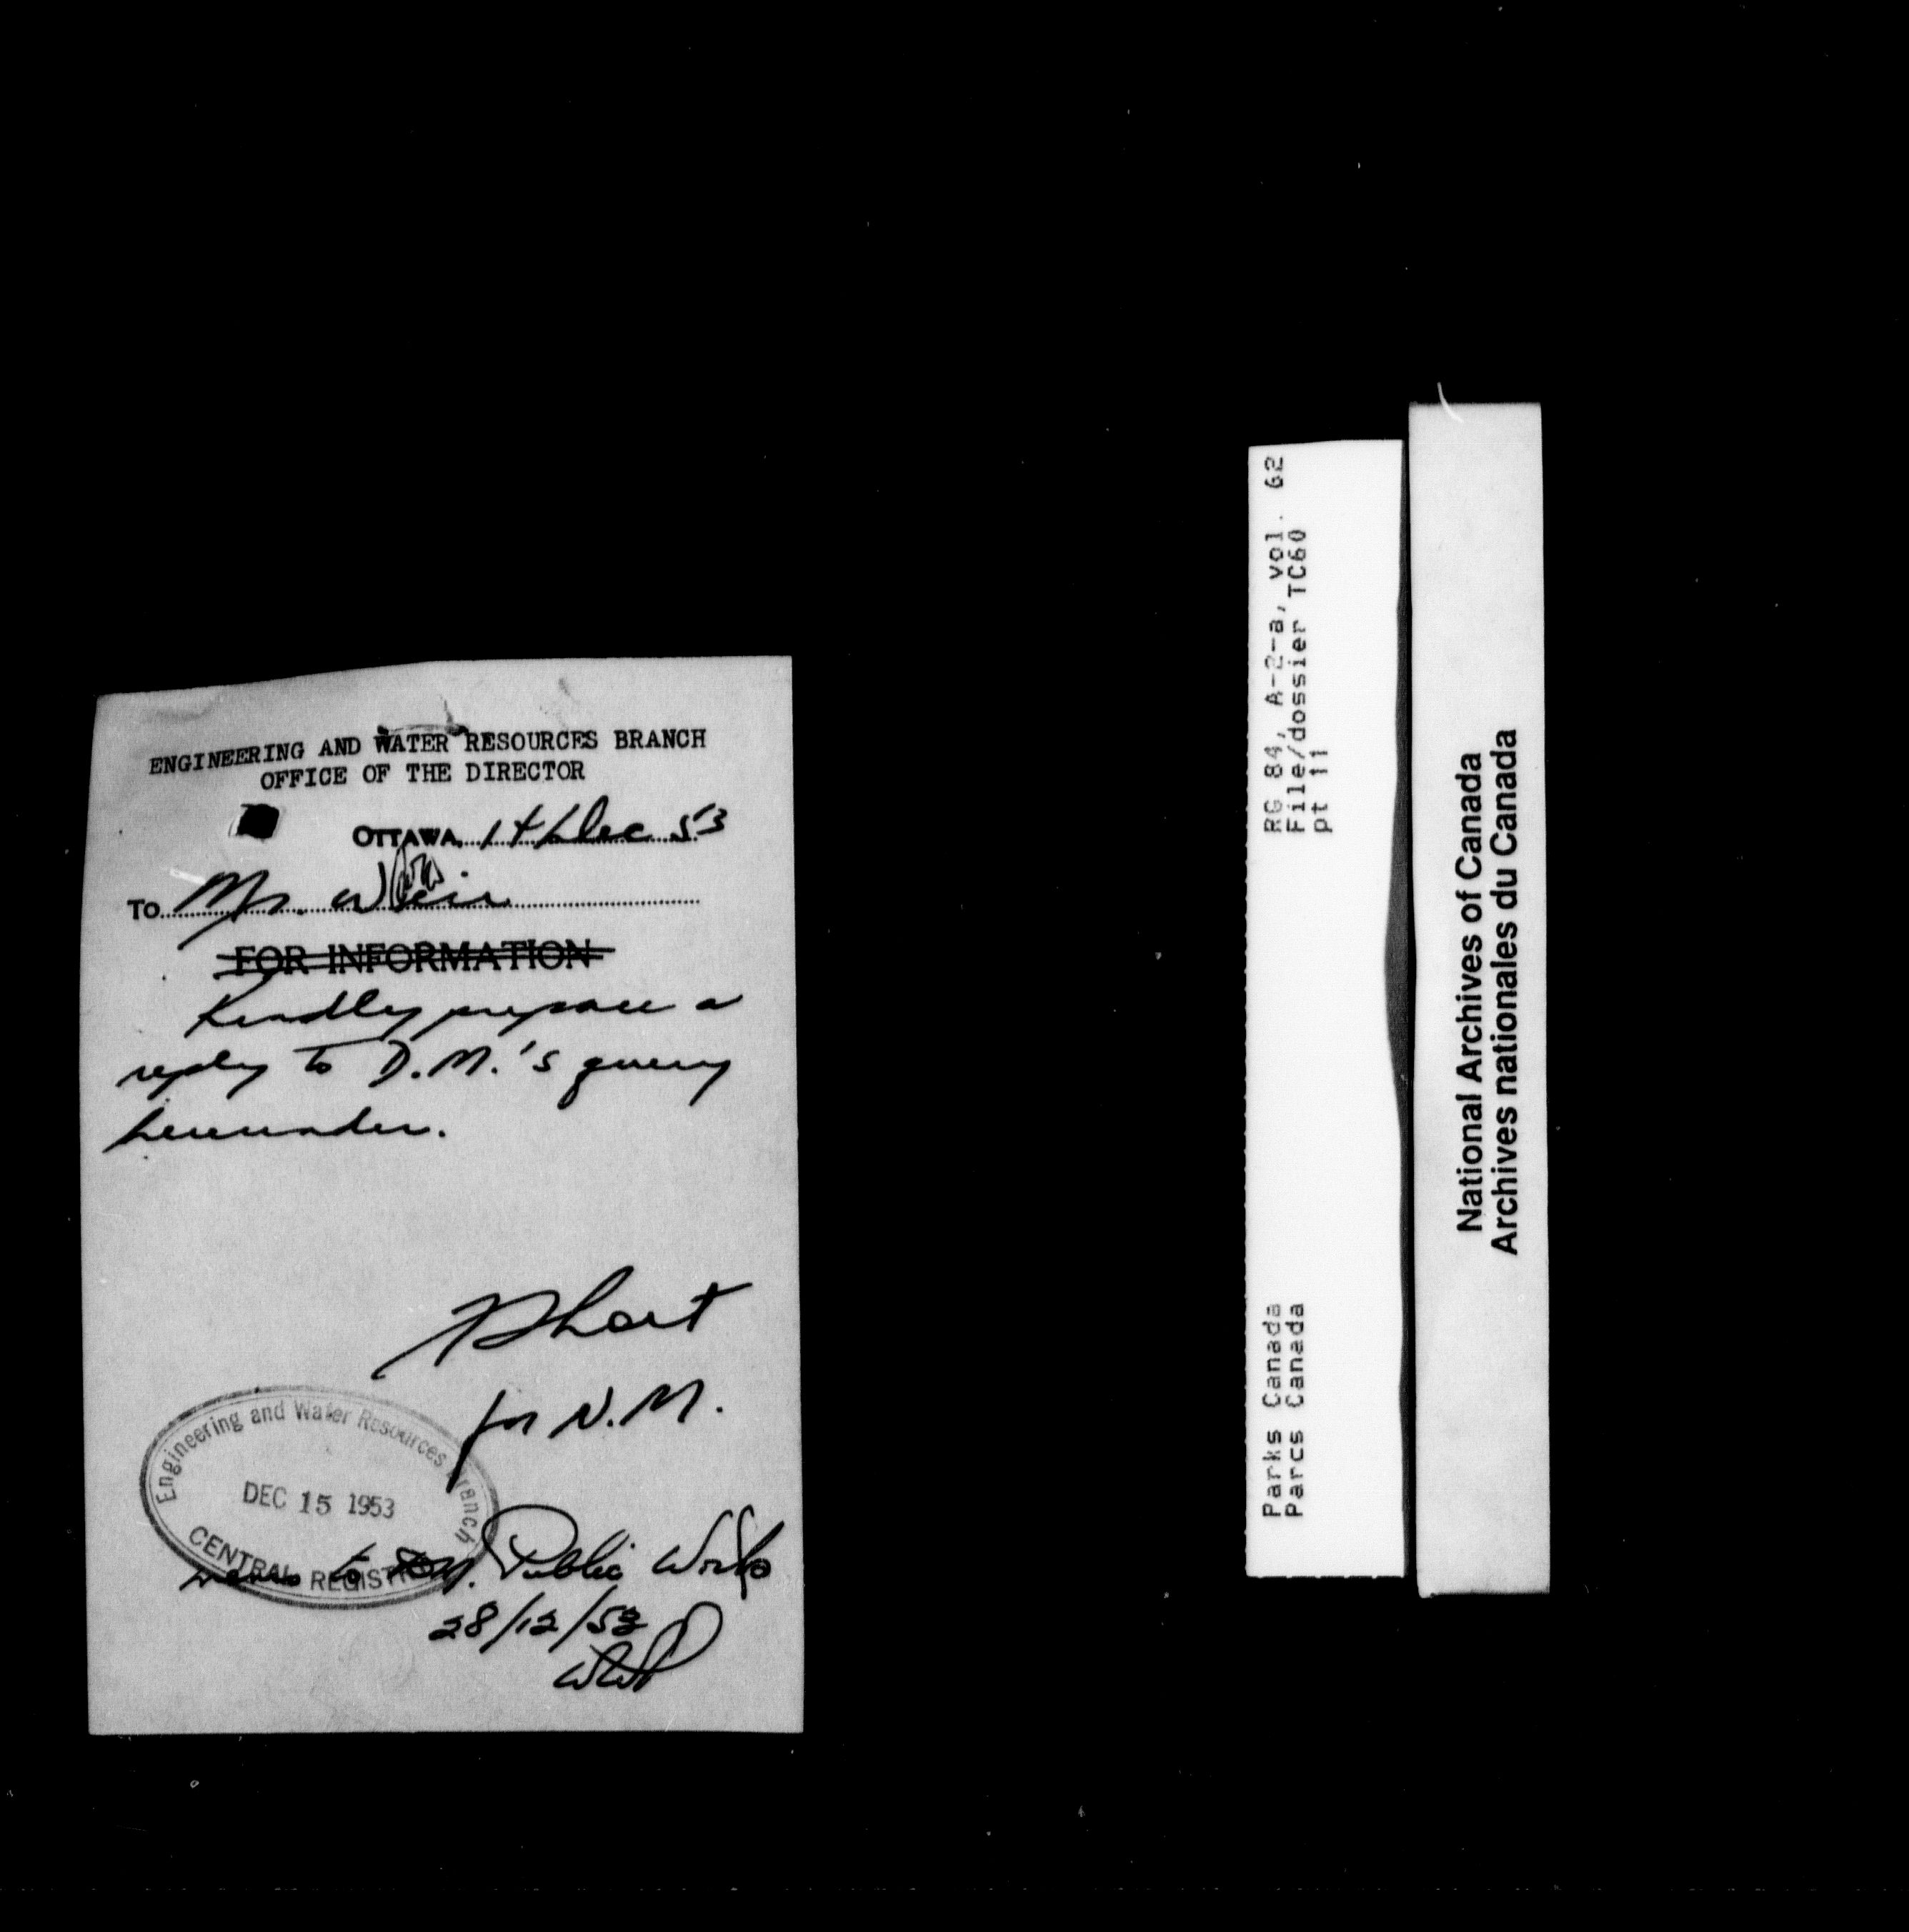 ENGINEERING AND WATER RESOURCES BRANCH
OFFICE OF THE DIRECTOR
OTTAWA, 14 Dec 53
To Mr. Weir
FOR INFORMATION
Kindly prepare a
reply to D.M.'s query
hereunder.
for N.M.
Engineering and Water Resources Branch
DEC 15 1953
CENTRAL REGISTRY
memo to D.M. Public Works
28/12/53
RG 84, A-2-a, vol. 62
File/dossier TC60
pt 11
Parks Canada
Parcs Canada
National Archives of Canada
Archives nationales du Canada